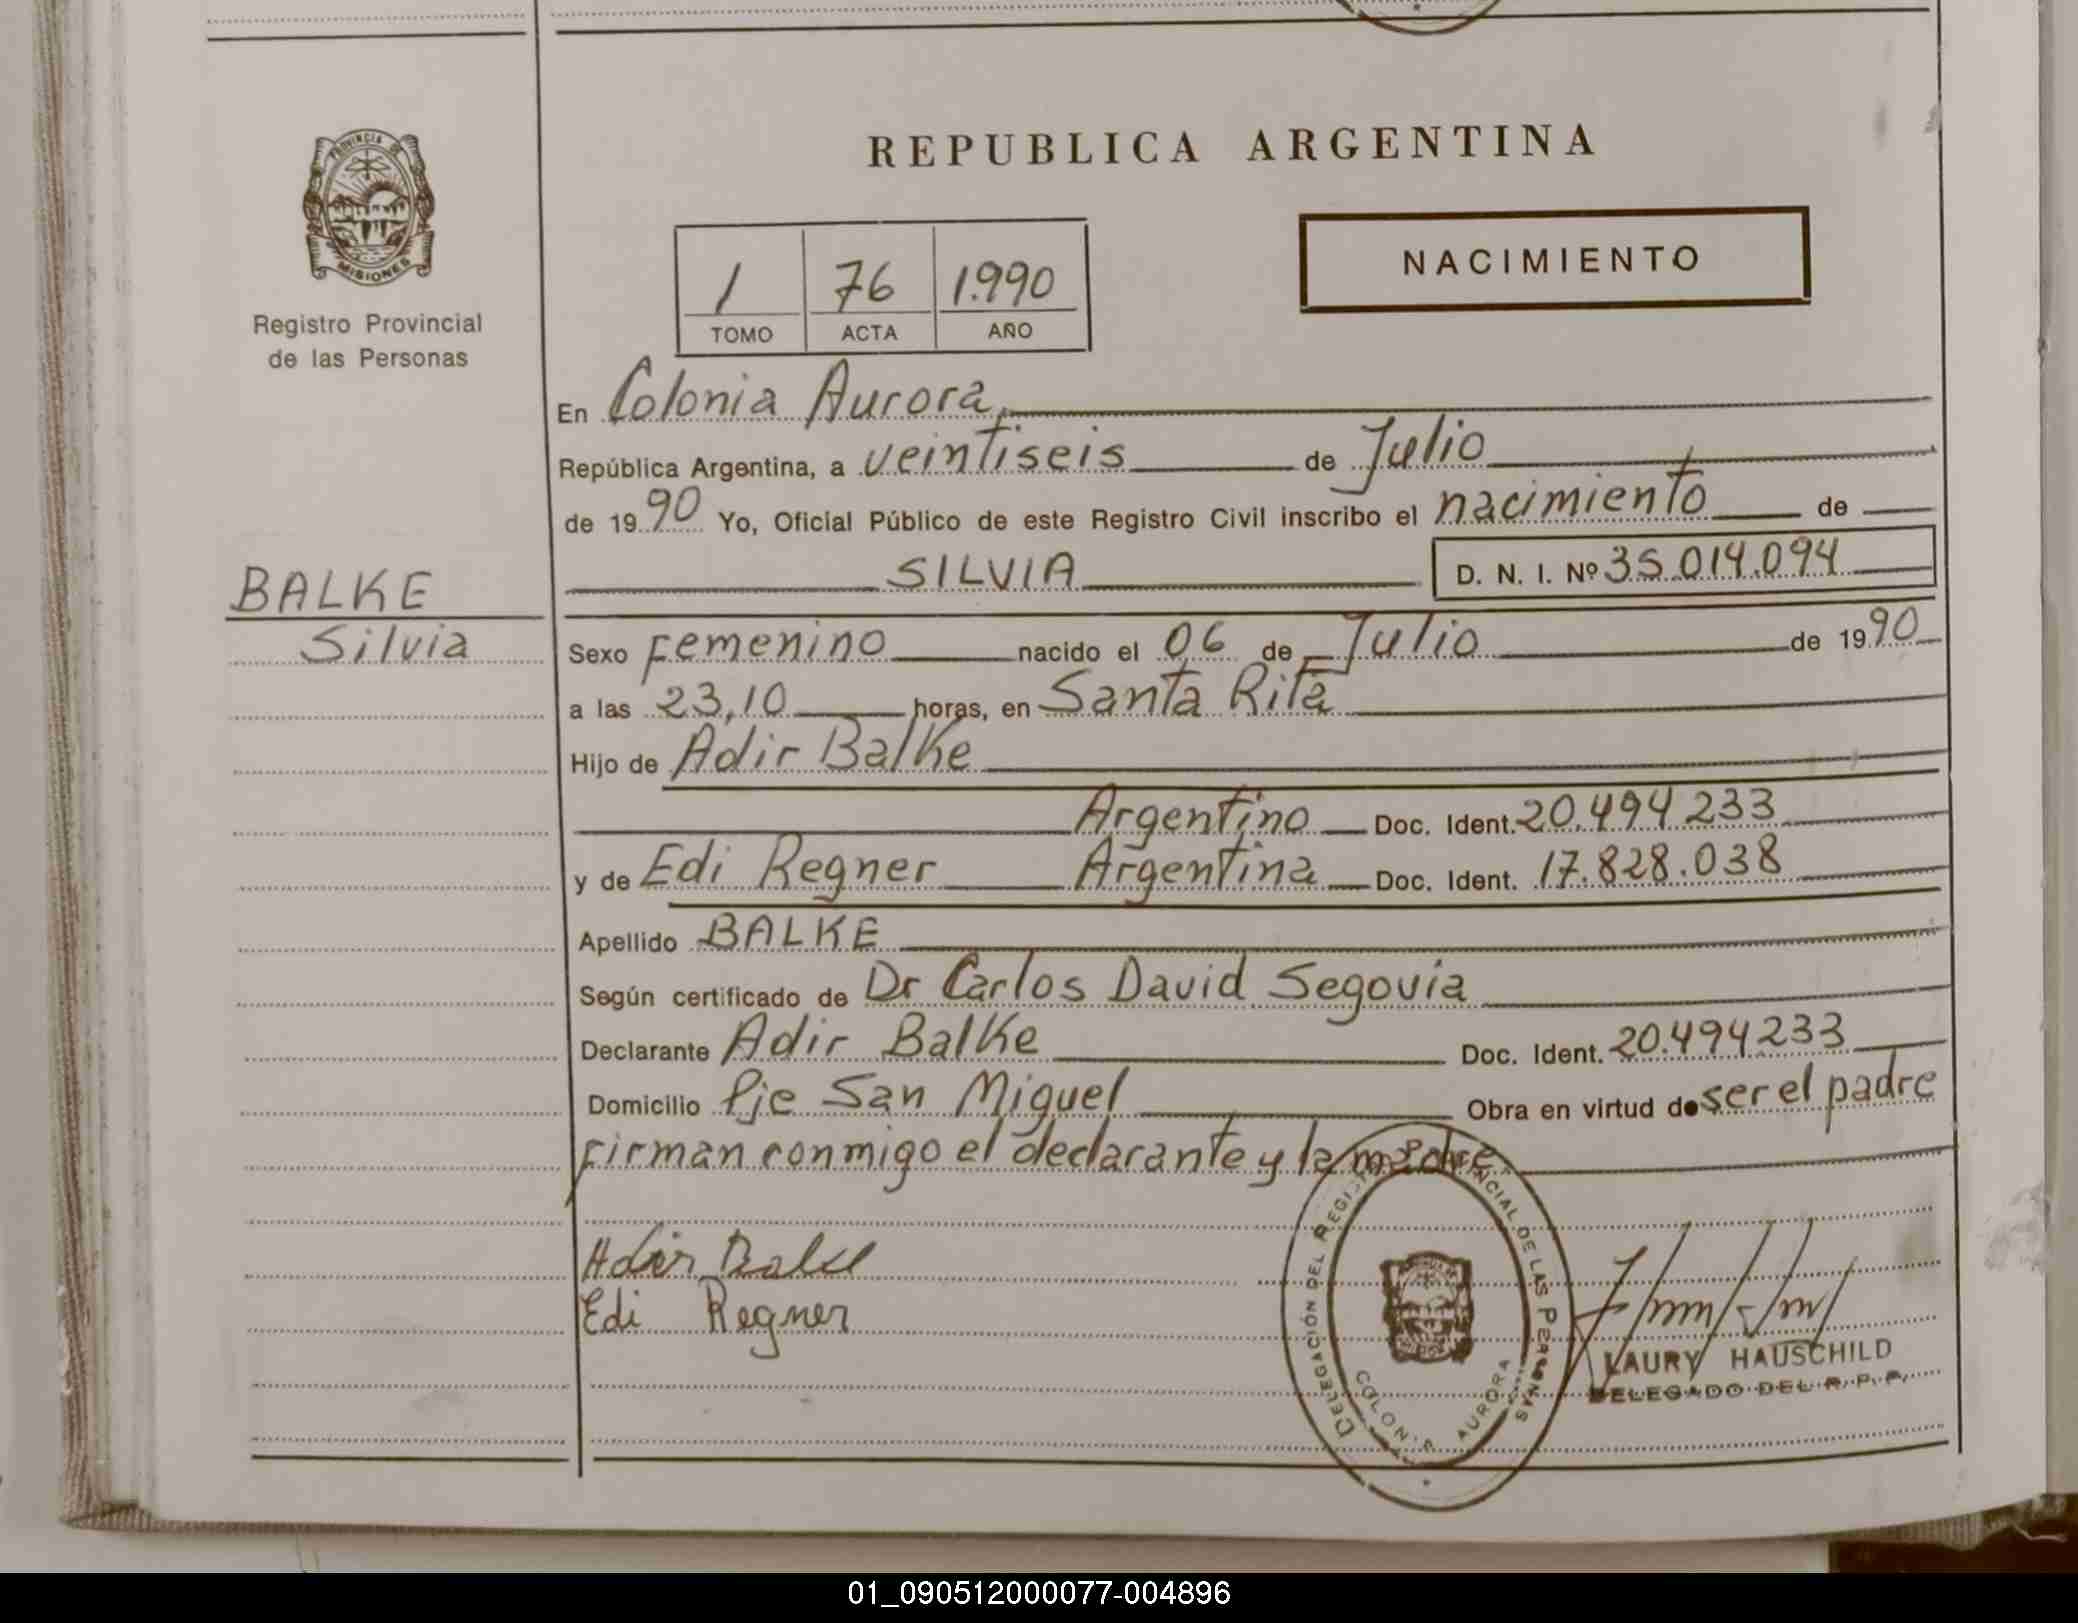 PROVINCIA DE
MISIONES
Registro Provincial
de las Personas
REPUBLICA ARGENTINA
NACIMIENTO
1 76 1.990
TOMO ACTA AÑO
En Colonia Aurora
República Argentina, a veintiseis de Julio
de 1990 Yo, Oficial Público de este Registro Civil inscribo el nacimiento de
SILVIA D. N. I. Nº 35.014.094
BALKE
Silvia
Sexo Femenino nacido el 06 de Julio de 1990
a las 23,10 horas, en Santa Rita
Hijo de Adir Balke
Argentino Doc. Ident. 20.494.233
y de Edi Regner Argentina Doc. Ident. 17.828.038
Apellido BALKE
Según certificado de Dr Carlos David Segovia
Declarante Adir Balke Doc. Ident. 20.494.233
Domicilio Pje San Miguel Obra en virtud de ser el padre
Firman conmigo el declarante y la madre
Adir Balke
Edi Regner
DELEGACIÓN DEL REGISTRO PROVINCIAL DE LAS PERSONAS
COLONIA AURORA
LAURY HAUSCHILD
DELEGADO DEL R. P. P.
01_090512000077-004896